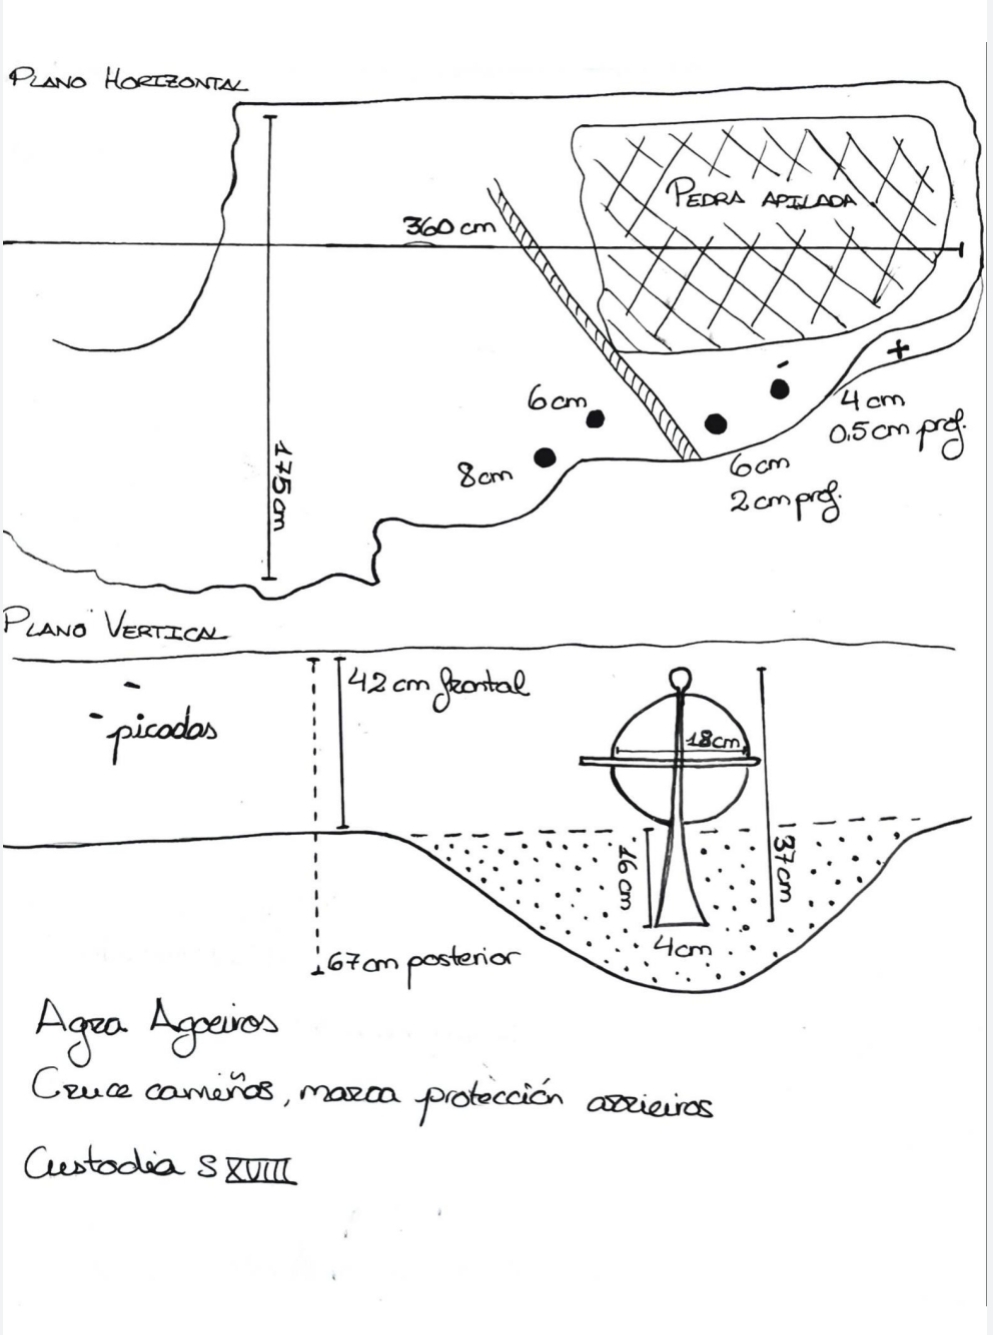 PLANO HORIZONTAL
PEDRA APILADA
360 cm
175cm
6cm
8cm
4 cm
0.5 cm prof.
6cm
2 cm prof.
PLANO VERTICAL
42 cm frontal
picadas
18cm
16 cm
37 cm
4cm
67 cm posterior
Agra Agoeiros
Cruce camiños, marca protección arrieiros
Custodia S XVIII